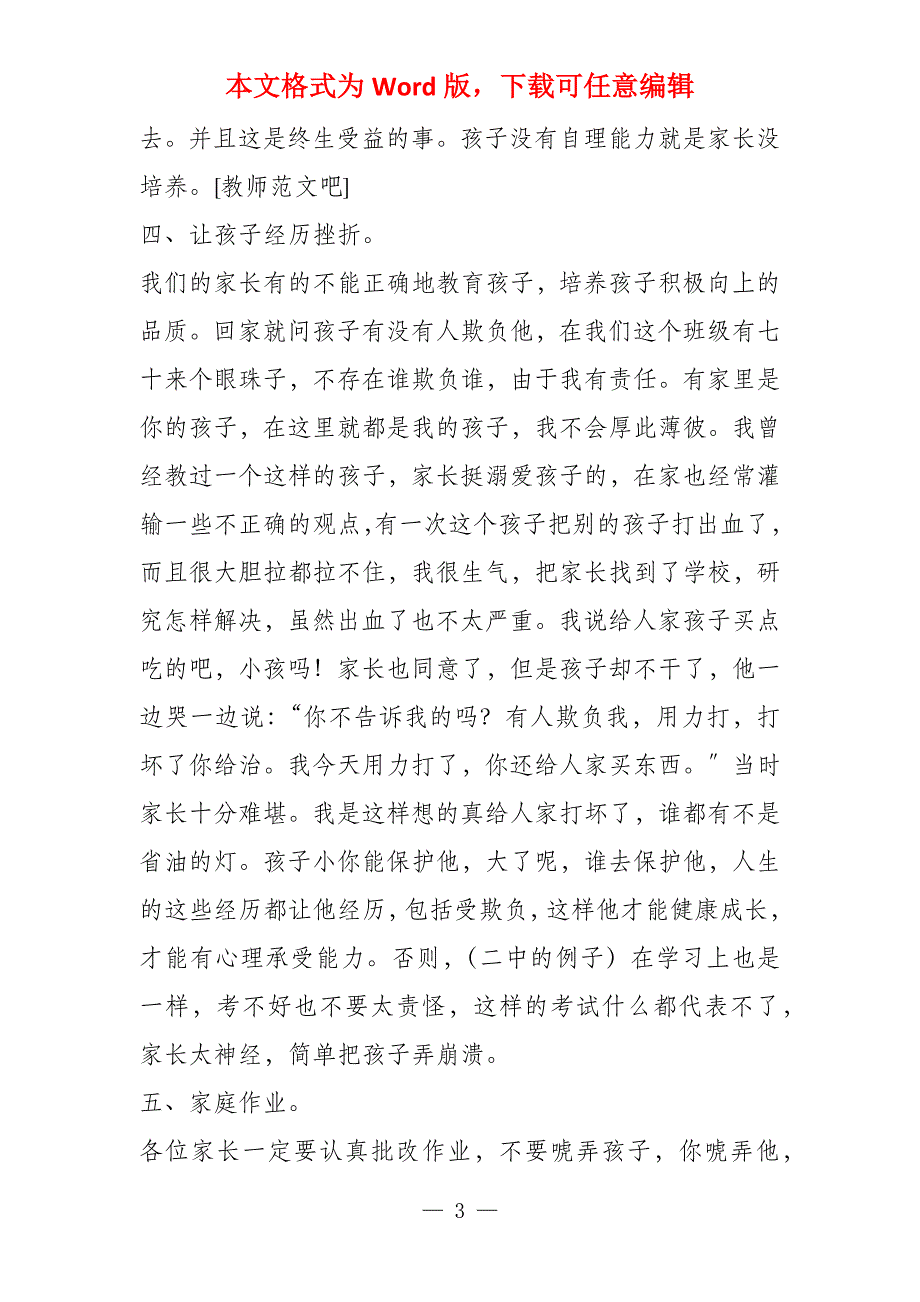 本文格式为 Word 版，下载可任意编辑
去。并且这是终生受益的事。孩子没有自理能力就是家长没
培养。[教师范文吧]
四、让孩子经历挫折。
我们的家长有的不能正确地教育孩子，培养孩子积极向上的
品质。回家就问孩子有没有人欺负他，在我们这个班级有七
十来个眼珠子，不存在谁欺负谁，由于我有责任。有家里是
你的孩子，在这里就都是我的孩子，我不会厚此薄彼。我曾
经教过一个这样的孩子，家长挺溺爱孩子的，在家也经常灌
输一些不正确的观点，有一次这个孩子把别的孩子打出血了，
而且很大胆拉都拉不住，我很生气，把家长找到了学校，研
究怎样解决，虽然出血了也不太严重。我说给人家孩子买点
吃的吧，小孩吗！家长也同意了，但是孩子却不干了，他一
边哭一边说：“你不告诉我的吗？有人欺负我，用力打，打
坏了你给治。我今天用力打了，你还给人家买东西。〞当时
家长十分难堪。我是这样想的真给人家打坏了，谁都有不是
省油的灯。孩子小你能保护他，大了呢，谁去保护他，人生
的这些经历都让他经历，包括受欺负，这样他才能健康成长，
才能有心理承受能力。否则，（二中的例子）在学习上也是
一样，考不好也不要太责怪，这样的考试什么都代表不了，
家长太神经，简单把孩子弄崩溃。
五、家庭作业。
各位家长一定要认真批改作业，不要唬弄孩子，你唬弄他，
— 3 —